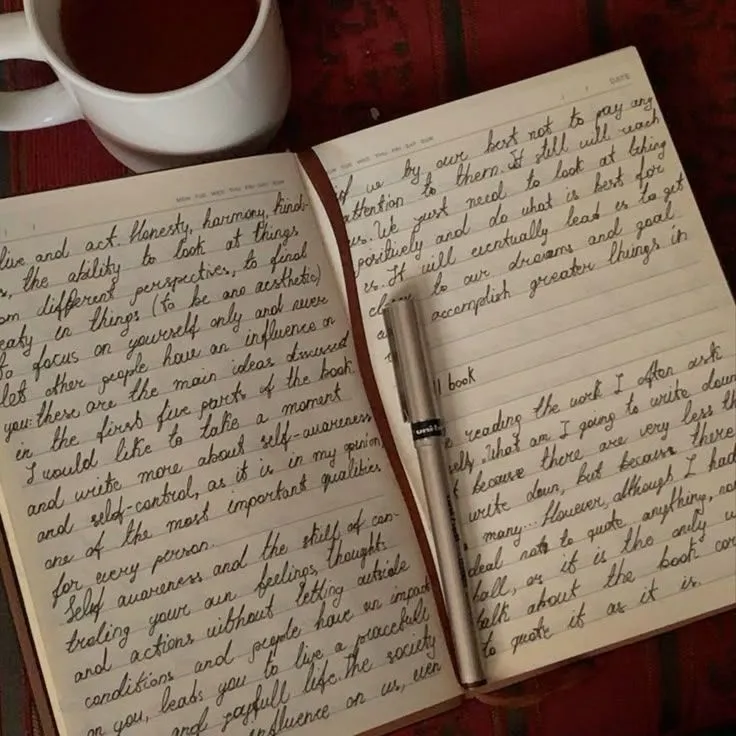 MON TUE WED THU FRI SAT SUN
live and act. Honesty, harmony, kind-
s, the ability to look at things
om different perspectives, to final
eaty in things (to be ano aesthetic)
to focus on yourself only and never
let other people have an influence on
you: these are the main ideas discussed
in the first five parts of the book.
I would like to take a moment
and write more about self-awareness
and self-control, as it is in my opinion,
one of the most important qualities
for every person.
Self awareness and the skill of con-
troling your own feelings, thoughts
and actions without letting outside
conditions and people have an impact
on you, leads you to live a peacefull
and joyfull life. The society
influence on us, even
DATE
MON TUE WED THU FRI SAT SUN
if we by our best not to pay any
attention to them. It still will reach
us. We just need to look at thing
positively and do what is best for
us. It will eventually lead us to get
to our dreams and goal
accomplish greater things in
book
reading the work I often ask
self, What am I going to write down
because there are very less th
write down, but because there
many... However, although I had
deal not to quote anything, no
ball, as it is the only w
talk about the book cor
to quote it as it is.
uni